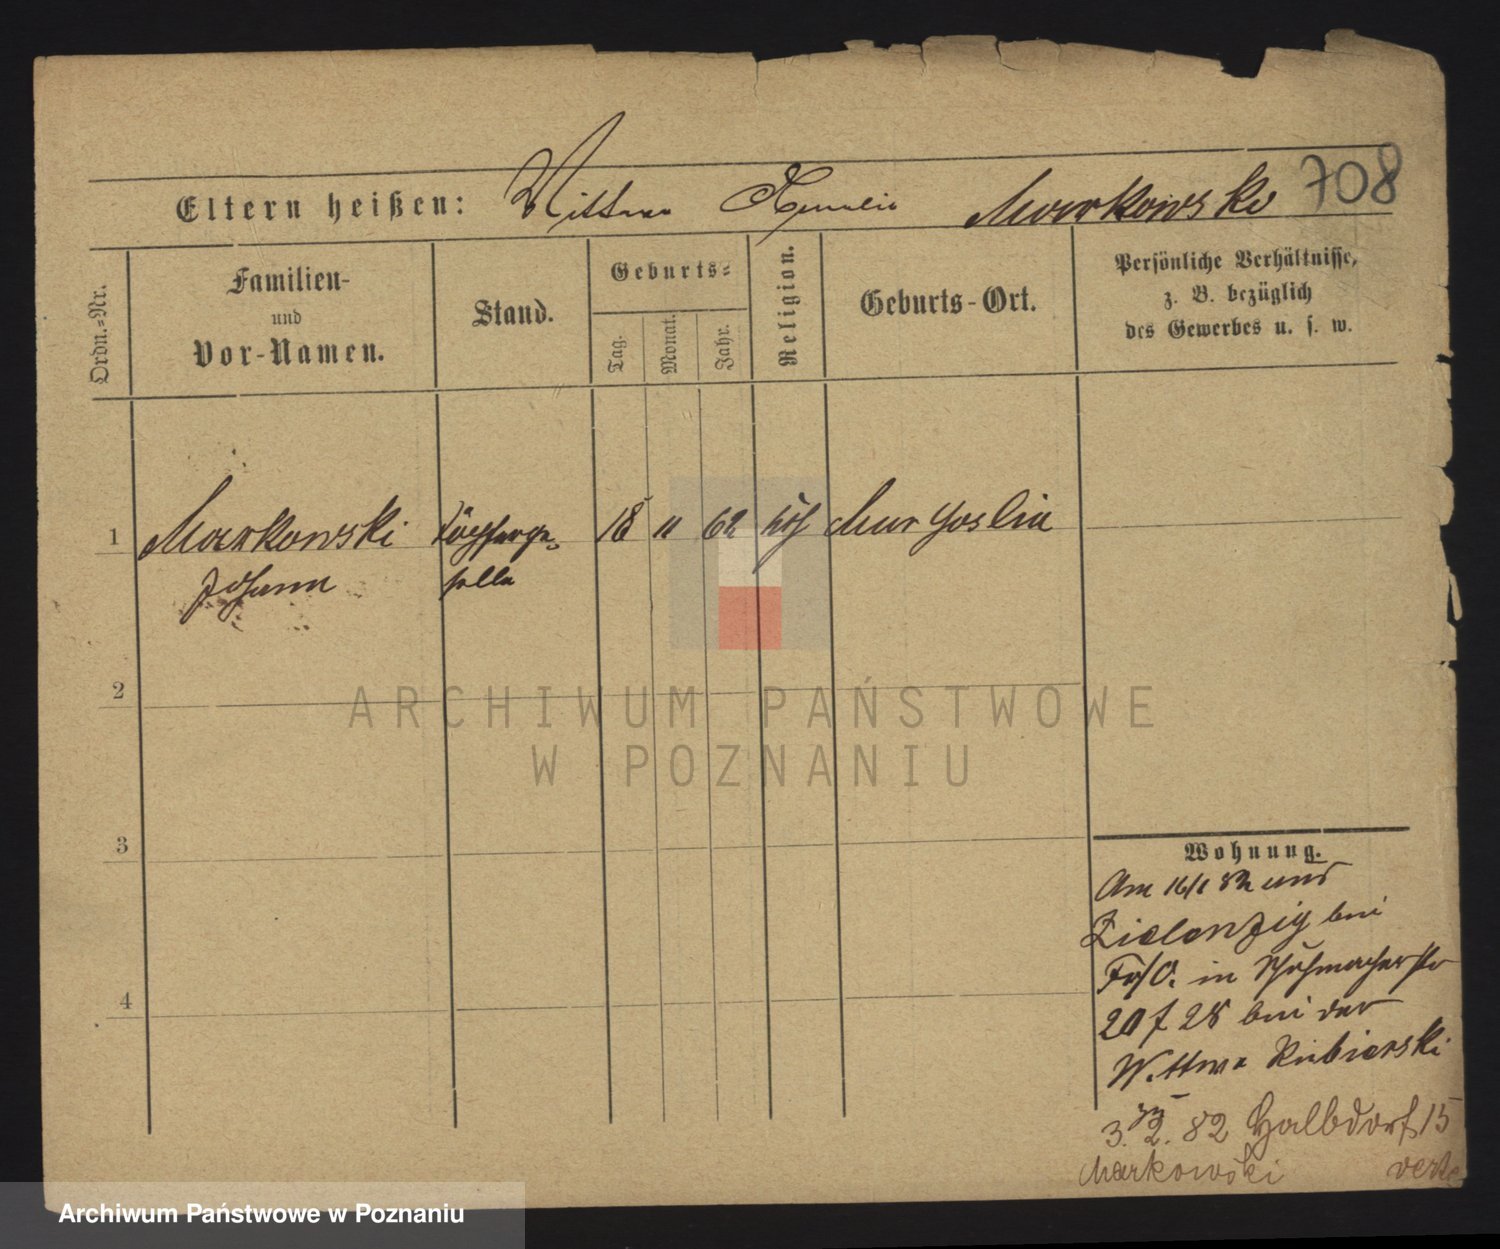 708
Eltern heißen: Wittwe Markowski
Ordn.-Nr.
Familien-
und
Vor-Namen.
Stand.
Geburts-
Tag.
Monat.
Jahr.
Religion.
Geburts-Ort.
Persönliche Verhältnisse,
z. B. bezüglich
des Gewerbes u. s. w.
1 Markowski 18 11 62 kth Mur Goslin
Johann selle
2
3
4
Wohnung.
Am 16/1 82 uns
Zielenzig bei
Fr/O. in Schuhmacherstr
20 f 28 bei der
Wittwe Rubierski
3. 2. 82 Halbdorf 15
Markowski verte
ARCHIWUM PAŃSTWOWE
W POZNANIU
Archiwum Państwowe w Poznaniu